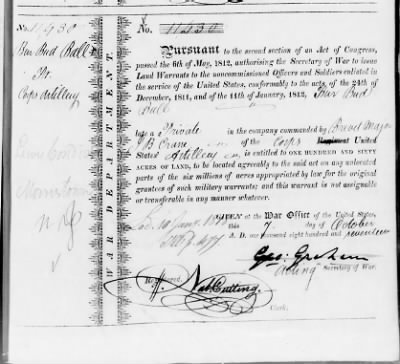 No. 11430
No. 11430
Pursuant to the second section of an Act of Congress,
passed the 6th of May, 1812, authorising the Secretary of War to issue
Land Warrants to the noncommissioned Officers and Soldiers enlisted in
the service of the United States, conformably to the acts, of the 24th of
December, 1811, and of the 11th of January, 1812,
Ball
late a Private in the company commanded by Brevet Major
J B Crane of the Corps Regiment United
States' Artillery is entitled to ONE HUNDRED AND SIXTY
ACRES OF LAND, to be located agreeably to the said act on any unlocated
parts of the six millions of acres appropriated by law for the original
grantees of such military warrants; and this warrant is not assignable
or transferable in any manner whatever.
GIVEN at the War Office of the United States,
this 7 day of October
A. D. one thousand eight hundred and seventeen
Geo: Graham
Acting Secretary of War.
Registered,
Clerk.
WAR DEPARTMENT.
Corps Artillery